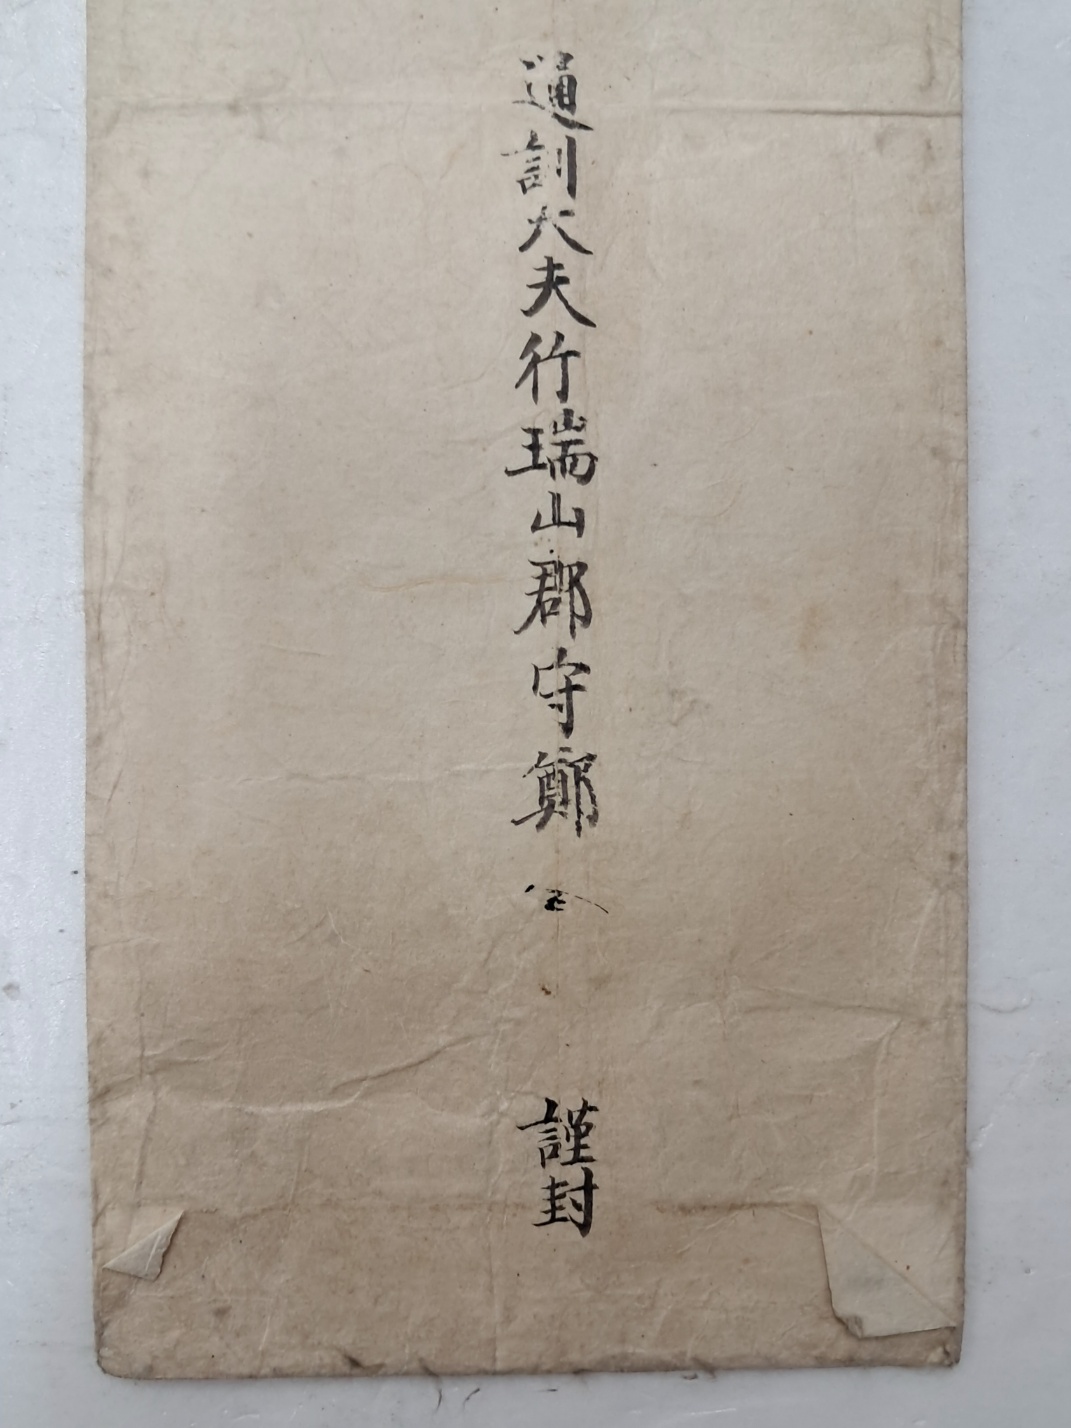 通訓大夫行瑞山郡守鄭
謹封